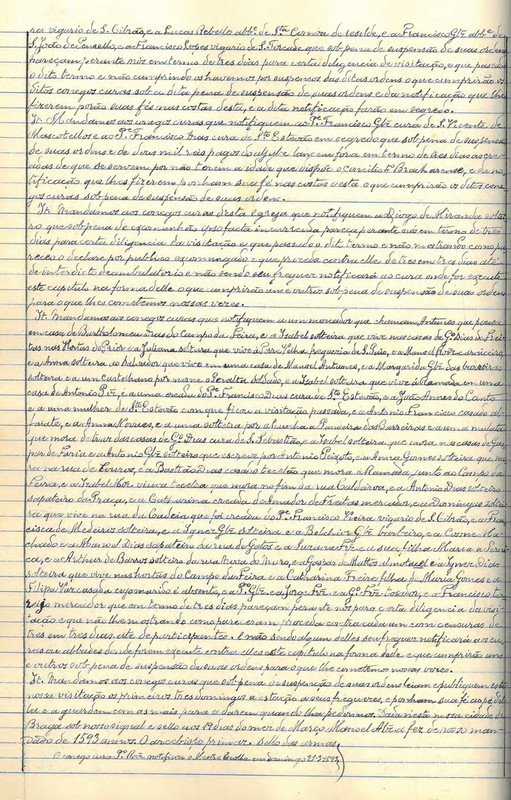 res vigario de S. Cibrão, e a Lucas Rebello abb.e de Sta e a Francisco Glz abb.e de
S. João de e a Francisco Lopes vigario de S. que sob pena de suspensão de suas ordens
pareçam perante nós em termo de tres dias para certa diligencia de visitação, e que passado
o dito termo e não cumprindo os havemos por suspensos das ditas ordens o que cumprirão os
ditos conegos curas sob a dita pena de suspensão de suas ordens e da notificação que lhes
fizerem porão suas fés nas costas desta, e a dita notificação farão em segredo.
It. Mandamos aos conegos curas que notifiquem ao P.e Francisco Glz cura de S. Vicente de
Mascotellos e ao P.e Francisco Dias cura de Sto Estevão em segredo que sob pena de suspensão
de suas ordens e de dois mil reis pagos do aljube lancem fóra em termo de tres dias as cre-
adas de que se servem por não terem a idade que dispõe o concilio Bracharense, e da no-
tificação que lhes fizerem ponham sua fé nas costas desta. o que cumprirão os ditos cone-
gos curas sob pena de suspensão de suas ordens.
It. Mandamos aos conegos curas desta Egreja que notifiquem a Diogo de Miranda soltei-
ro que sob pena de excomunhão ipso facto incurrenda pareça perante nós em termo de tres
dias para certa diligencia da visitação e que passado o dito termo e não mostrando como pa-
receo o declare por publico excomungado e que proceda contra elle de tres em tres dias até
de interdicto deambulatorio e não sendo seu freguez notificará ao cura onde for execute
este capitulo na forma delle o que cumprirão um e outro sob pena de suspensão de suas ordens
para o que lhes cometemos nossas vezes.
It. Mandamos aos conegos curas que notifiquem a um morador que chamam Antunes que pousa
em casa de Bartholomeu Dias do Campo da Feira, e a Isabel solteira que vive nas casas de G.o Dias de Frei-
tas nas Hortas do Prior e a Juliana solteira que vive a freguezia de S. Paio, e a Manoel
e a Anna solteira do Salvador que vive em uma casa de Manoel Antunes, e a Margarida Glz das barreiras
solteira e a um Castelhano por nome e a Isabel solteira que vive á Ramada em uma
casa de Antonio Piz, e a uma creada do P.e Francisco Dias cura de Sto Estevão, e a João Annes do Canto
e a uma mulher de Sto Estevão com que ficou a visitação passada, e a Antonio Francisco casado al-
faiate, e a Anna e a uma solteira por alcunha a das Barreiras e a uma mulata
que mora de traz das casas de G.o Dias cura de S. Sebastião, e a Isabel solteira que mora nas casas de Gas-
par de Faria e a Antonio Glz solteiro que escreve por Antonio Peixoto, e a Anna Gomes solteira que mo-
ra na rua de e a Bastião Dias casado tecelão que mora á Ramada, junto ao Campo da
Feira, e a Isabel Mor. viuva tecelôa que mora no fim da rua Caldeiroa, e a Antonio Dias solteiro
sapateiro da Praça, e a Catherina creada de Amador de Freitas mercador, e a Domingas soltei-
ra que vive na rua da Cadeia que foi creada do P.e Francisco Vieira vigario de S. Cibrão, e a Fran-
cisca de Medeiros solteira, e a Ignez Glz solteira e a Belchior Glz barbeiro, e a Cosme Ma-
chado e a Manoel Dias sapateiro da rua de Gatos e a e a sua filha Maria a
ca, e a Arthur de Barros solteiro da rua Nova do Muro, e a Gaspar de Mattos almotacel e a Ignez Dias
solteira que vive nas hortas do Campo da Feira e a Catharina Freire filha de Maria Gomes e a
Filipa Vaz casada cujo marido é absente, e a P.o Glz e a Jorge Frz e a G.o Frz tosador, e a Francisco
mercador que em termo de tres dias pareçam perante nós para certa diligencia da visi-
tação e que não lhe mostrando como pareceram proceda contra cada um com censuras de
tres em tres dias até de participantes. E não sendo algum delles seu freguez notificará ao cu-
ra ou abbade donde forem execute contra elles este capitulo na forma delle e que cumprirão uns
e outros sob pena de suspensão de suas ordens para o que lhe cometemos nossas vezes.
It. Mandamos aos conegos curas que sob pena de suspensão de suas ordens leiam e publiquem esta
nossa visitação os primeiros tres domingos á estação a seus freguezes, e ponham sua fé ao pé del-
la e a guardem com as mais para a darem quando lha pedirmos. Dada nesta nossa cidade de
Braga sob nosso signal e sello aos 12 dias do mez de Março. Manoel Alz a fez de nosso man-
dado de 1593 annos. O arcebispo primaz. Sello das armas.
O conego cura P.o Roiz notifiquei a em domingo 21-3-1593